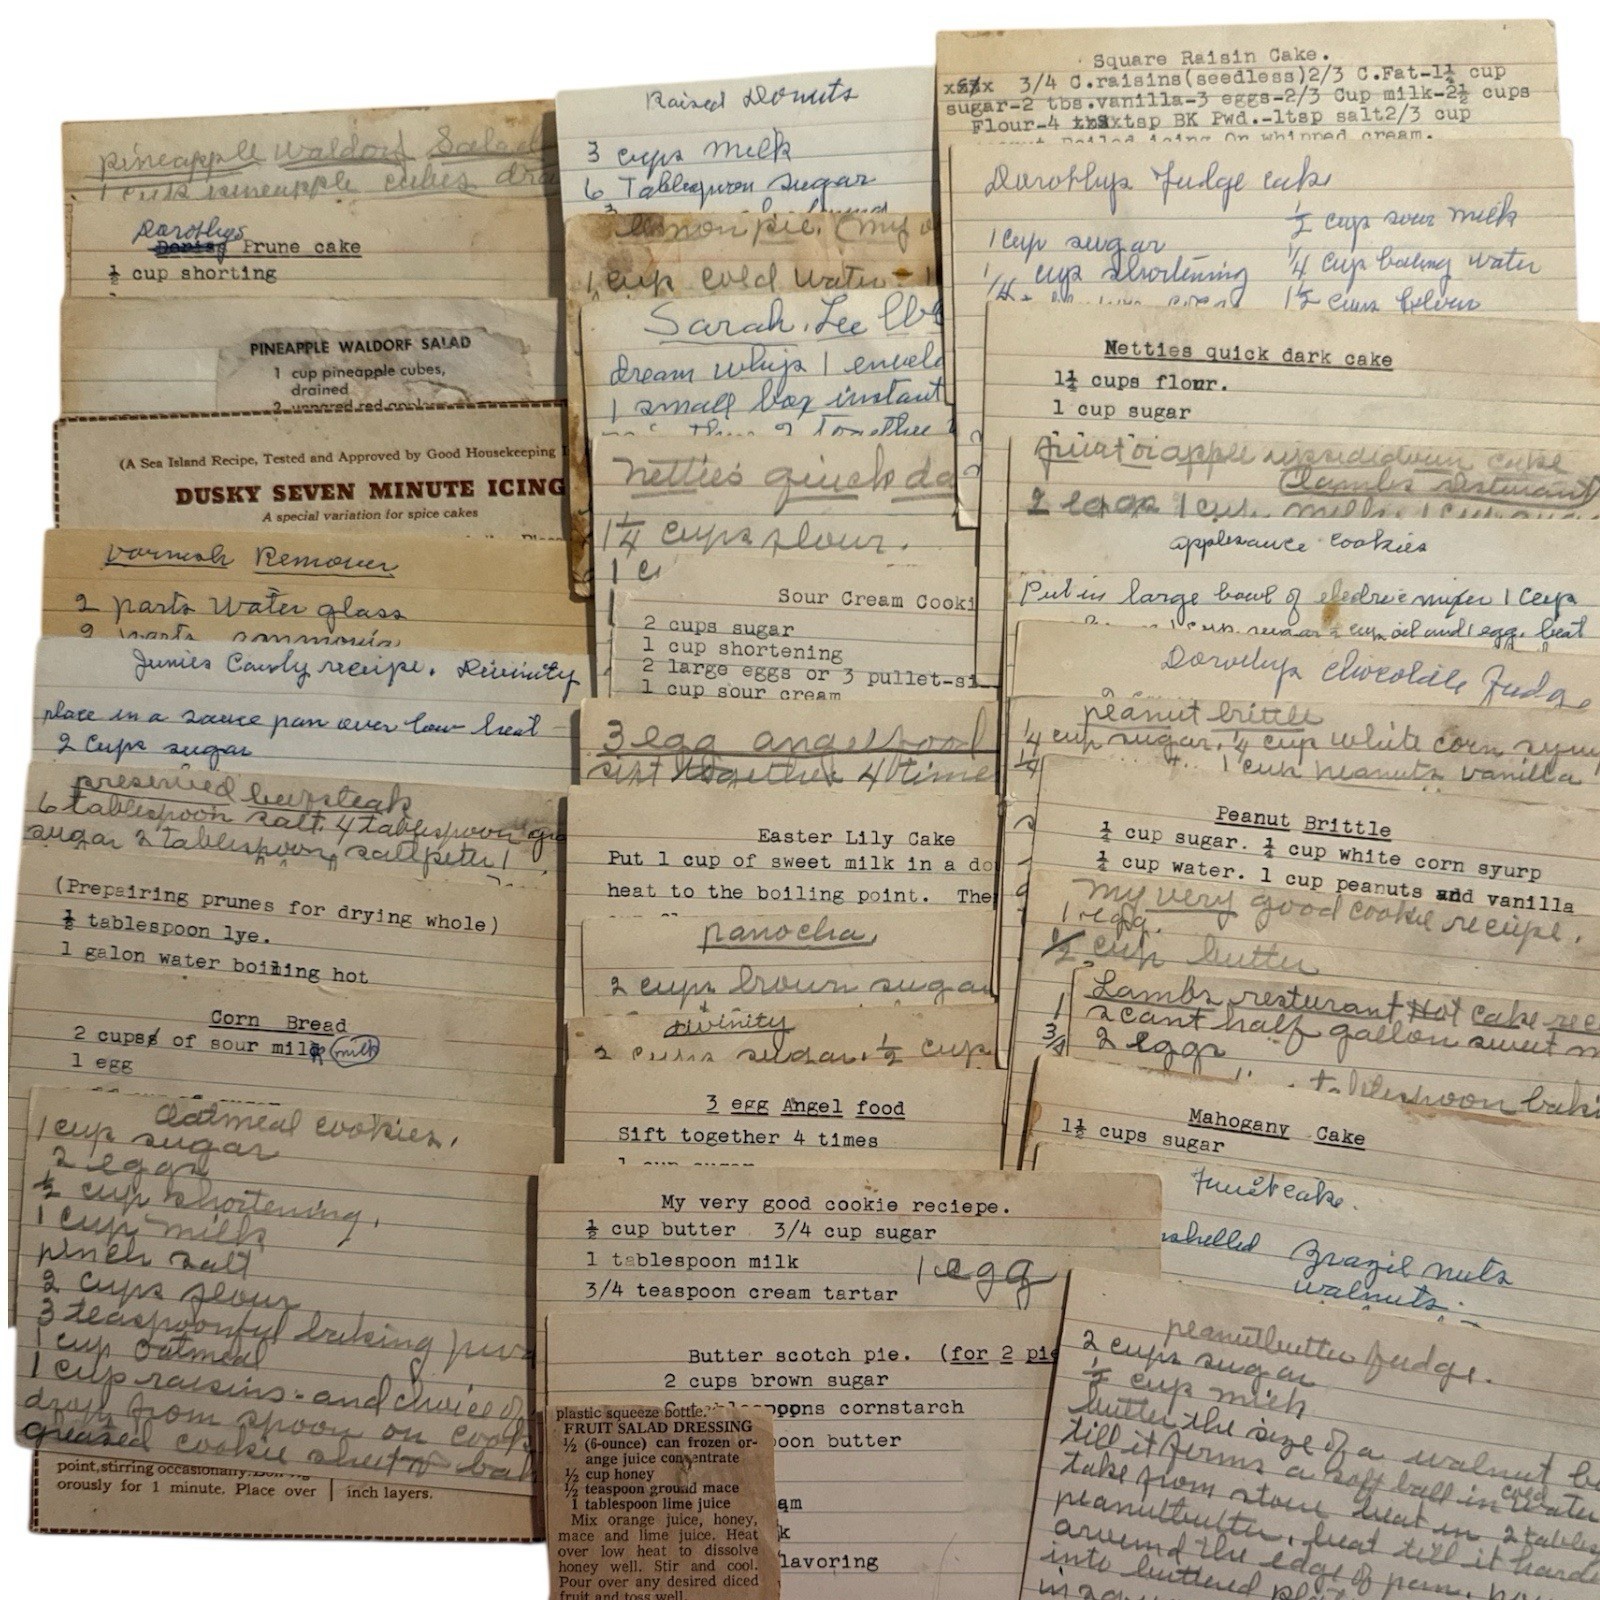 pineapple waldorf Salad
1 cup pineapple cubes
Dorothys
Prune cake
½ cup shorting
PINEAPPLE WALDORF SALAD
1 cup pineapple cubes,
drained
2 unpared red apples
(A Sea Island Recipe, Tested and Approved by Good Housekeeping
DUSKY SEVEN MINUTE ICING
A special variation for spice cakes
Varnish Remover
2 parts Water glass
2 parts ammonia
Junies Candy recipe. Divinity
place in a sauce pan over low heat
2 cups sugar
preserved beefsteak
6 tablespoon salt. 4 tablespoon
sugar 2 tablespoon saltpeter 1
(Prepairing prunes for drying whole)
½ tablespoon lye.
1 galon water boiling hot
Corn Bread
2 cups of sour milk (milk)
1 egg
Oatmeal cookies.
1 cup sugar
2 eggs
½ cup shortening,
1 cup milk
pinch salt
2 cups flour
3 teaspoonful baking
1 cup oatmeal
1 cup raisins - and choice of
drop from spoon on
greased cookie sheet
point, stirring occasionally.
orously for 1 minute. Place over
inch layers.
Raised Donuts
3 cups milk
6 Tablespoon sugar
lemon pie. (my
1 cup cold water
Sarah. Lee
dream whip 1
1 small box instant
Netties quick
1¼ cups flour.
1
Sour Cream
2 cups sugar
1 cup shortening
2 large eggs or 3
1 cup sour cream
3 egg angel food
sift together 4 times
Easter Lily Cake
Put 1 cup of sweet milk in a
heat to the boiling point. The
panocha,
2 cups brown sugar
Divinity
2 cups sugar. ½ cup
3 egg Angel food
Sift together 4 times
1 cup sugar
My very good cookie reciepe.
½ cup butter 3/4 cup sugar
1 tablespoon milk
1 egg
3/4 teaspoon cream tartar
Butter scotch pie. (for 2
2 cups brown sugar
cornstarch
butter
flavoring
plastic squeeze bottle.
FRUIT SALAD DRESSING
½ (6-ounce) can frozen or-
ange juice concentrate
½ cup honey
½ teaspoon ground mace
1 tablespoon lime juice
Mix orange juice, honey,
mace and lime juice. Heat
over low heat to dissolve
honey well. Stir and cool.
Pour over any desired diced
fruit and toss well.
Square Raisin Cake.
3/4 C.raisins(seedless)2/3 C.Fat-1½ cup
sugar-2 tbs.vanilla-3 eggs-2/3 Cup milk-2½ cups
Flour-4 tsp BK Pwd.-1tsp salt2/3 cup
Boiled icing Or whipped cream.
Dorothys Fudge cake
½ cup sour milk
1 cup sugar
¼ cup boiling water
cup shortening
1½ cups flour
Netties quick dark cake
1½ cups flour.
1 cup sugar
apple upsidedown cake
(Lambs resturant)
2 eggs 1 cup
applesauce cookies
Put in large bowl of electric mixer 1 Cup
oil and 1 egg. beat
Dorothys chocolate Fudge
peanut brittle
¼ cup sugar, ¼ cup white corn
1 cup peanuts vanilla
Peanut Brittle
½ cup sugar. ½ cup white corn syurp
½ cup water. 1 cup peanuts and vanilla
My very good cookie recipe.
1 egg.
½ cup butter
Lambs resturant Hot Cake
2 cant half gallon sweet
2 eggs
tablespoon
Mahogany Cake
1½ cups sugar
Fruitcake.
Brazil nuts
walnuts
peanutbutter fudge.
2 cups sugar
½ cup milk
butter the size of a walnut
till it forms a soft ball in cold water
take from stove beat in 2
peanutbutter, beat till it
around the edge of pan.
into buttered